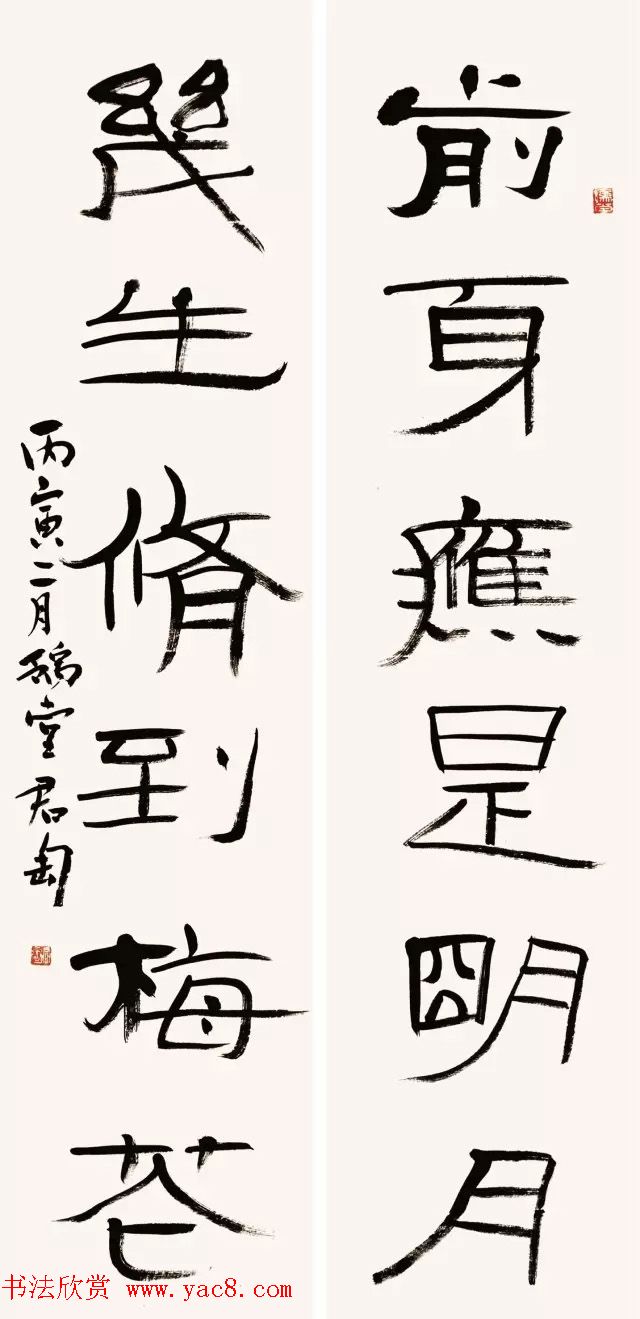 前身應是明月
幾生脩到梅花
丙寅二月鴙堂君匋
书法欣赏 www.yac8.com